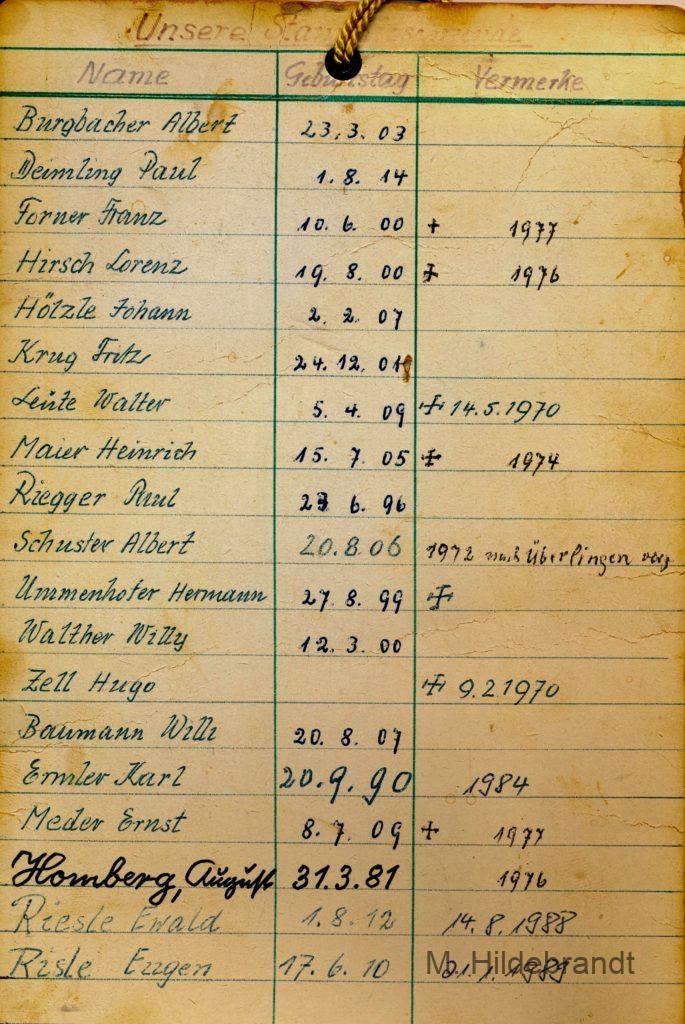 Unsere
Name Geburtstag Vermerke
Burgbacher Albert 23. 3. 03
Deimling Paul 1. 8. 14
Forner Franz 10. 6. 00 + 1977
Hirsch Lorenz 19. 8. 00 + 1976
Hölzle Johann 2. 2. 07
Krug Fritz 24. 12. 01
Leute Walter 5. 4. 09 + 14.5.1970
Maier Heinrich 15. 7. 05 + 1974
Riegger Paul 6. 96
Schuster Albert 20.8.06 1972 nach Überlingen verz
Ummenhofer Hermann 27. 8. 99 +
Walther Willy 12. 3. 00
Zell Hugo + 9.2.1970
Baumann Willi 20. 8. 07
Ermler Karl 20.9.90 1984
Meder Ernst 8. 7. 09 + 1977
Homberg, August 31.3.81 1976
Riesle Ewald 1. 8. 12 14.8.1988
Risle Eugen 17. 6. 10 1.1989
M. Hildebrandt